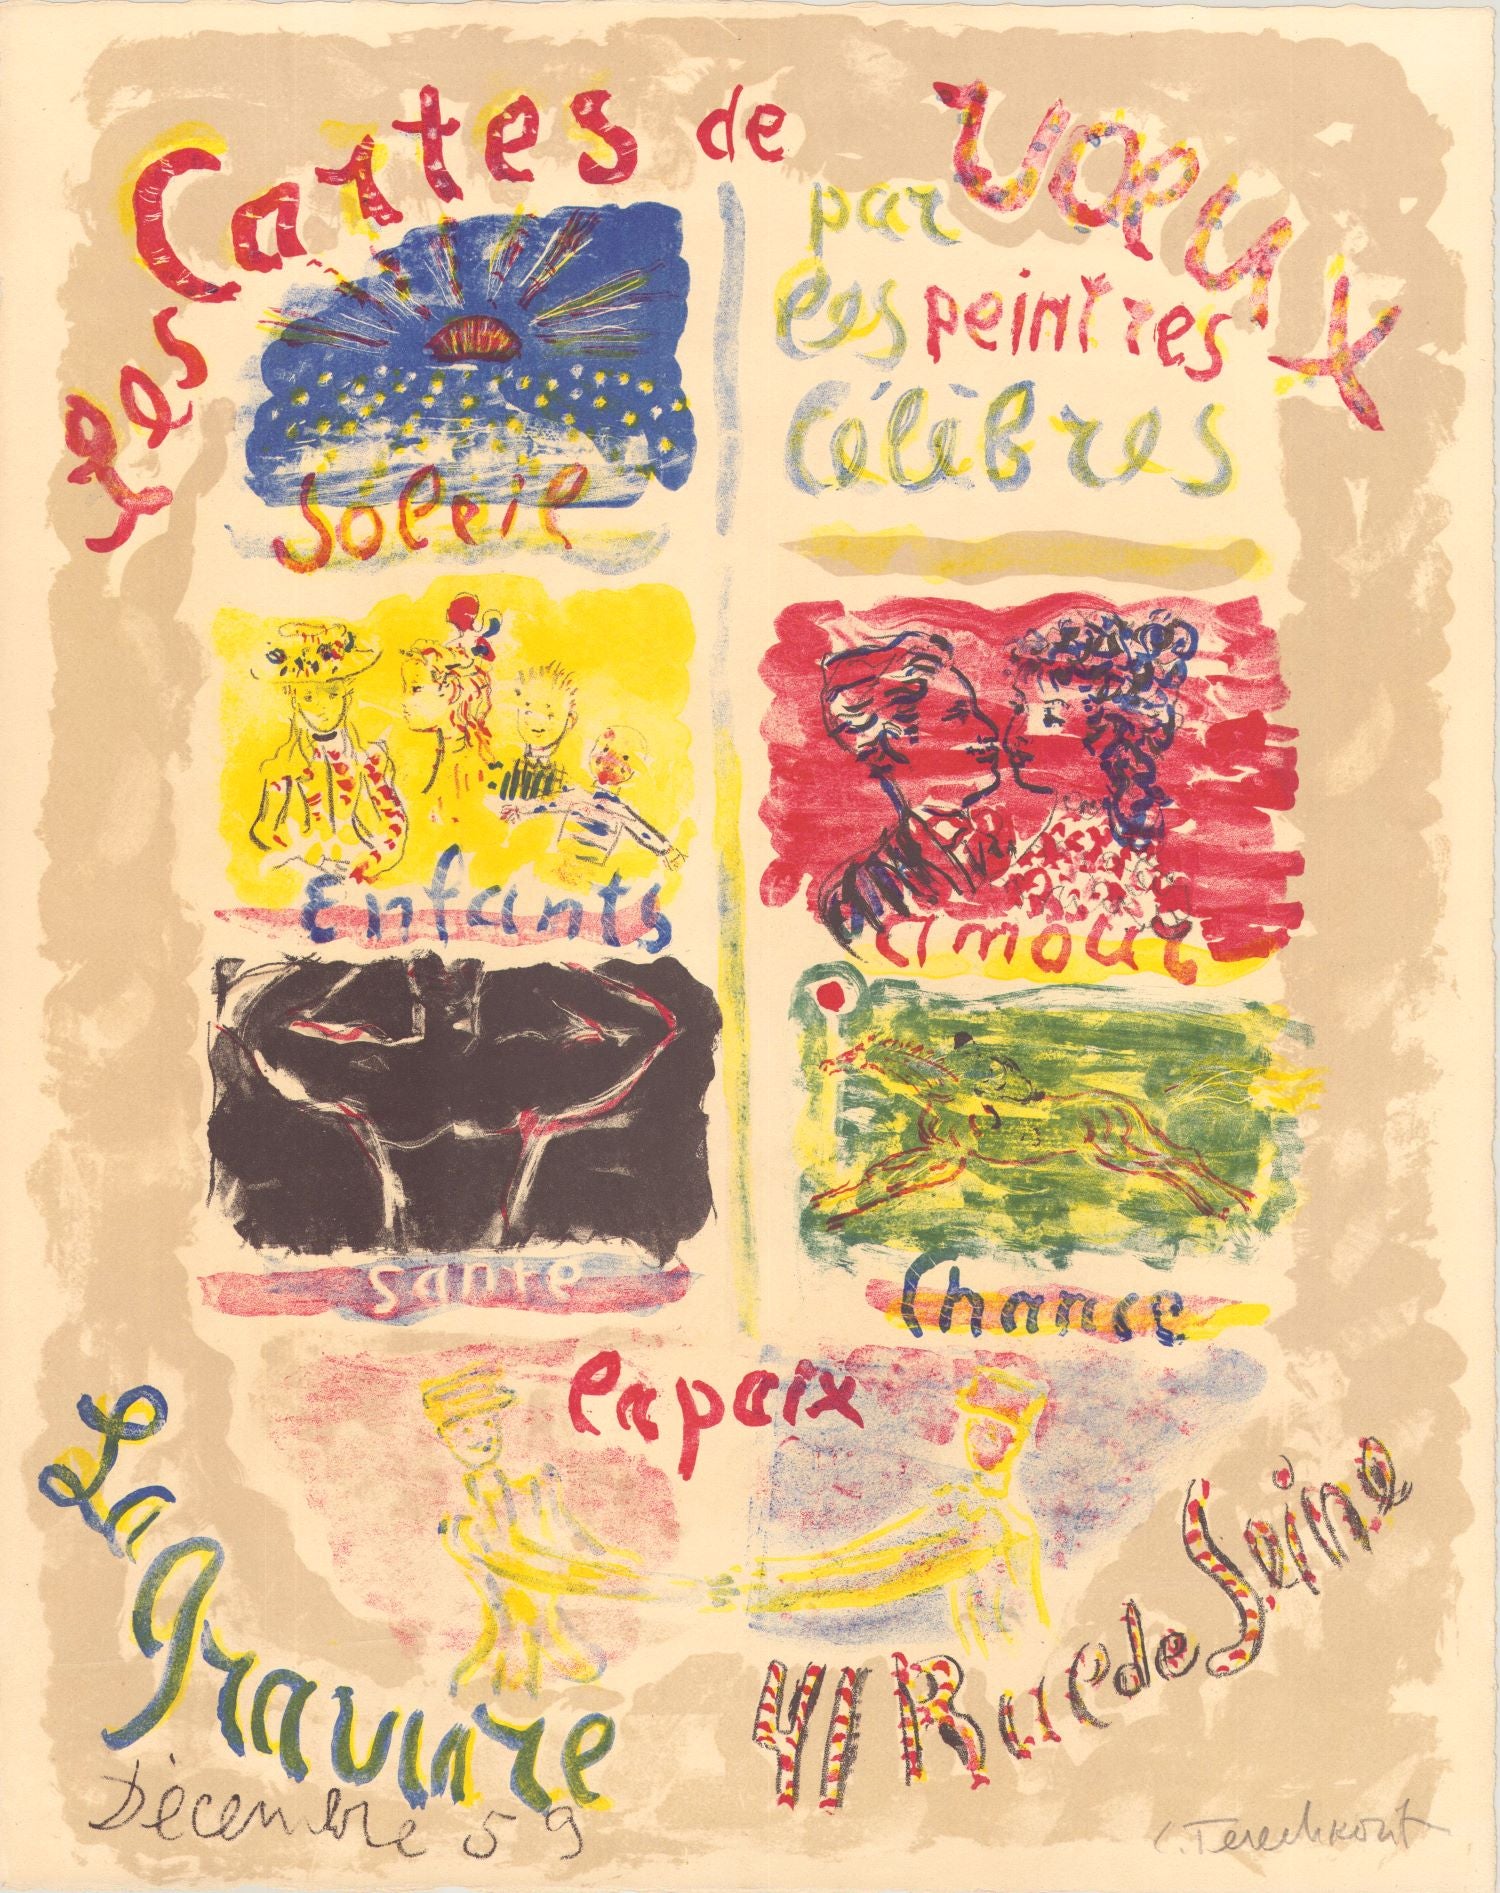 Les Cartes de Vœux
par
les peintres
Célèbres
Soleil
Enfants
amour
Santé
Chance
la paix
La Gravure
41 Rue de Seine
Décembre 59
C. Terechkovitch